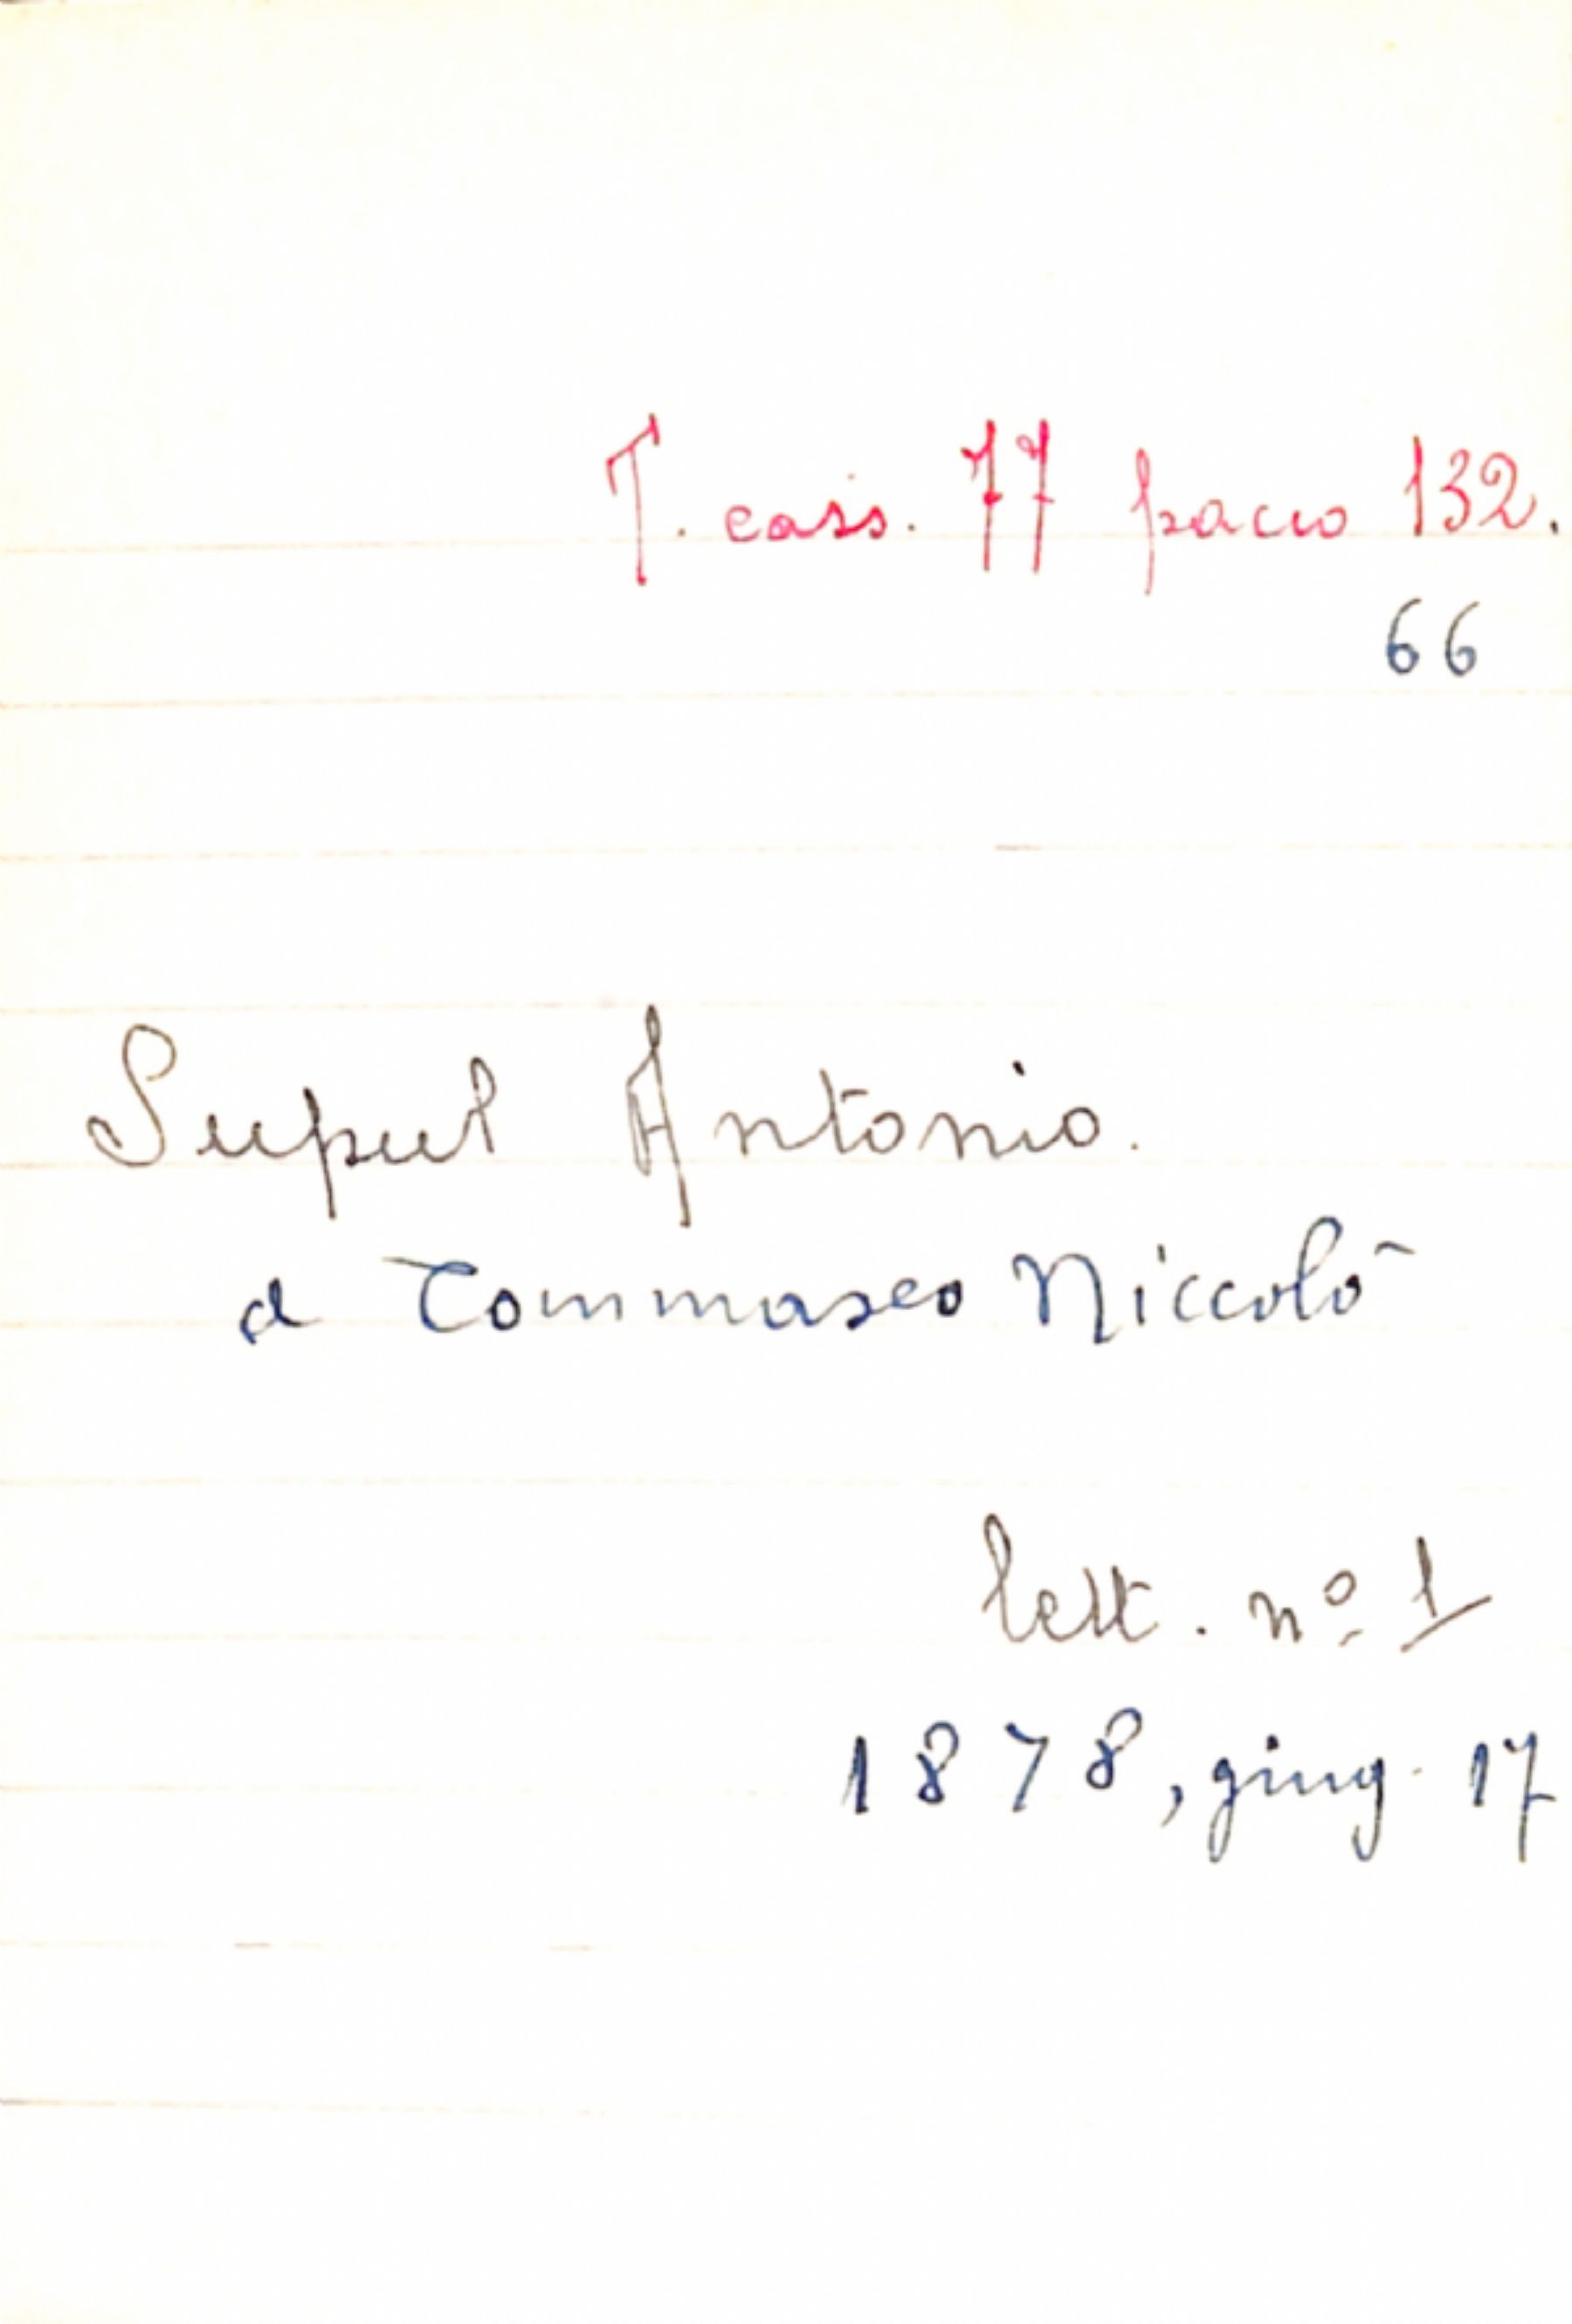 T. cass. 77 pacco 132.
66
Supul Antonio.
a Tommaseo Niccolò
lett. nº 1
1878, giug. 17